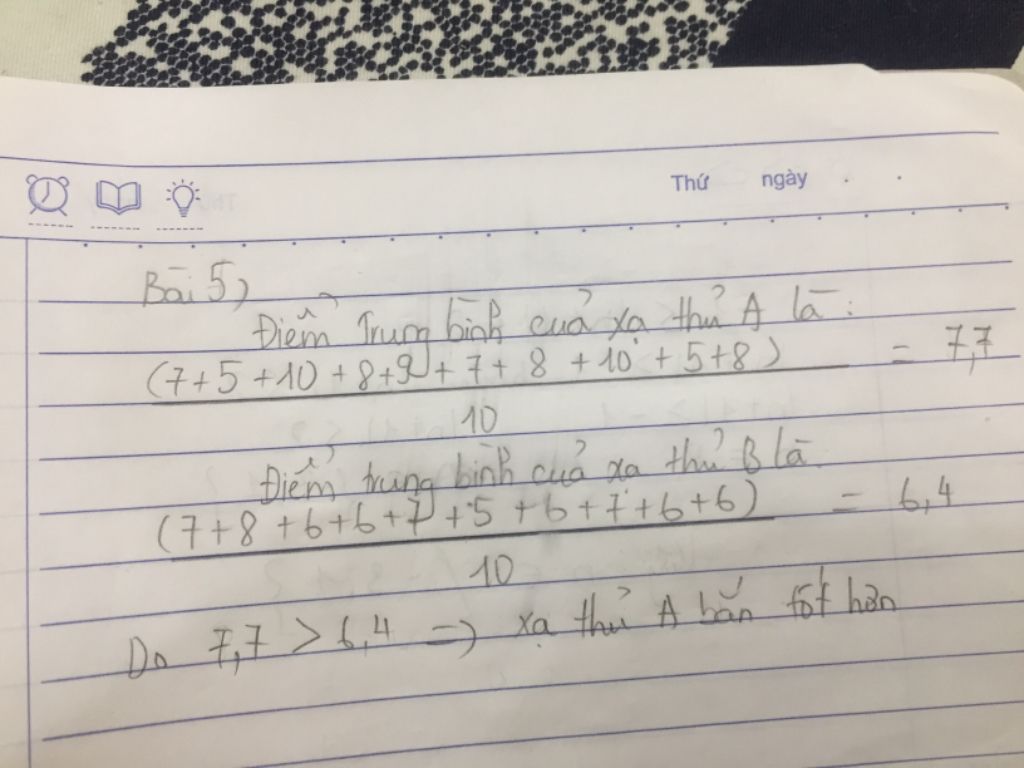 Thứ ngày
Bài 5)
Điểm Trung bình của xạ thủ A là:
(7+5+10+8+9+7+8+10+5+8) = 7,7
10
Điểm trung bình của xạ thủ B là
(7+8+6+6+7+5+6+7+6+6) = 6,4
10
Do 7,7 > 6,4 => xạ thủ A bắn tốt hơn